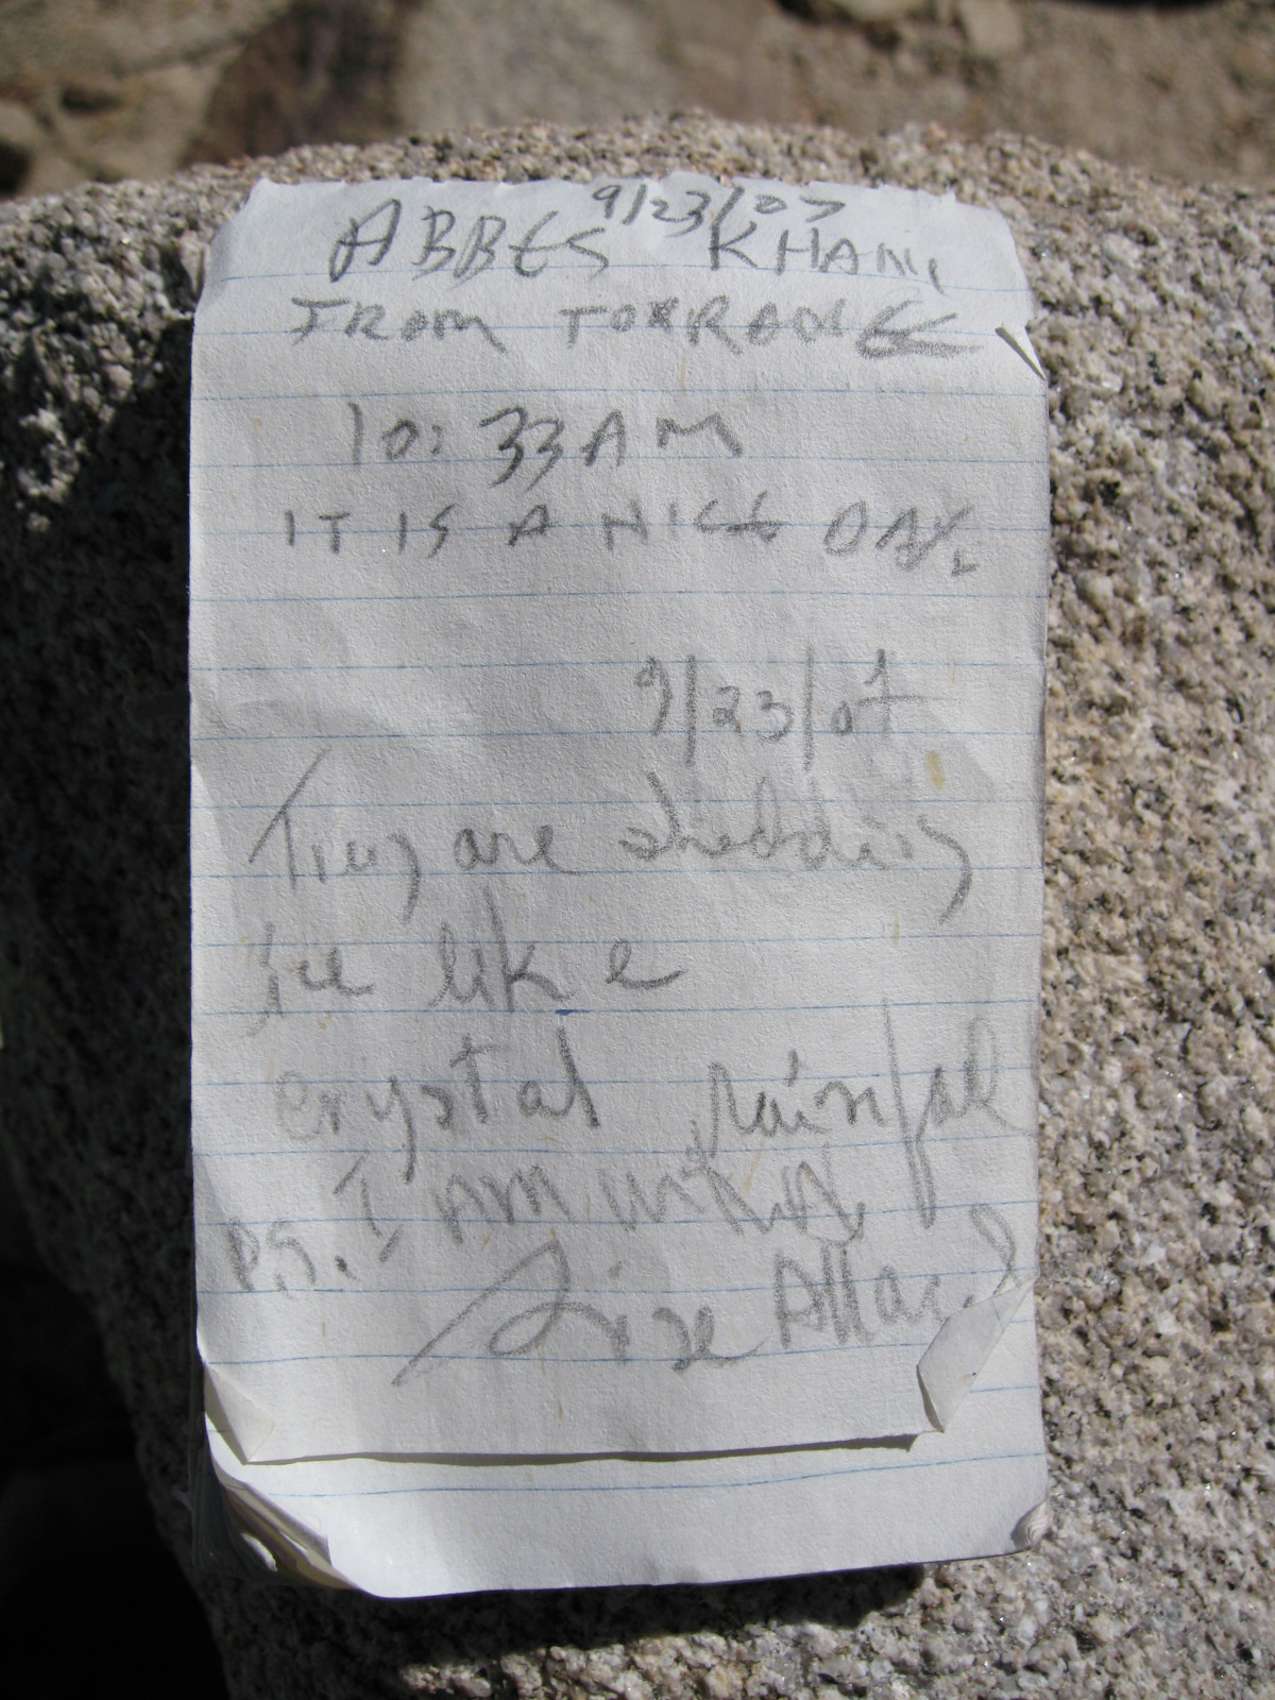 9/23/07
ABBES KHANI
FROM TORRANCE
10:33 AM
IT IS A NICE DAY.
9/23/07
are shedding
ice like
crystal rainfal
P.S. I AM with A